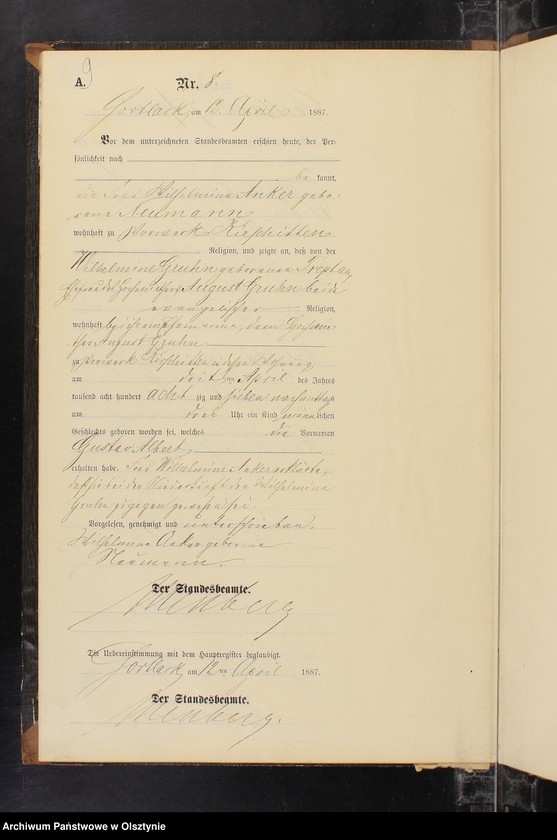 A.
9
Nr. 8.
am 12. April 1887.
Vor dem unterzeichneten Standesbeamten erschien heute, der Per-
sönlichkeit nach
be kannt,
die Frau Wilhelmine Anker gebo-
rene Neumann
wohnhaft zu Vorwerk
Religion, und zeigte an, daß von der
Wilhelmine Gruhn geborenen
Ehefrau des August Gruhn beide
evangelischer Religion,
wohnhaft bei ihrem Ehemanne, dem
August Gruhn
zu Vorwerk in Wohnung
am April des Jahres
tausend acht hundert acht zig und sieben nachmittags
um drei Uhr ein Kind männlichen
Geschlechts geboren worden sei, welches die Vornamen
Gustav Albert
erhalten habe. Frau Wilhelmine Anker erklärte,
daß sie bei der Niederkunft der Wilhelmine
Gruhn zugegen gewesen sei.
Vorgelesen, genehmigt und unterschrieben.
Wilhelmine Anker geborene
Neumann.
Der Standesbeamte.
Die Uebereinstimmung mit dem Hauptregister beglaubigt.
am 12 ten April 1887.
Der Standesbeamte.
Archiwum Państwowe w Olsztynie